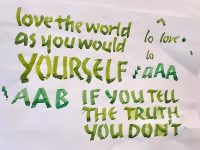 love the world
as you would
YOURSELF
lo love
lo
aAA
AAB
IF YOU TELL
THE TRUTH
YOU DON'T